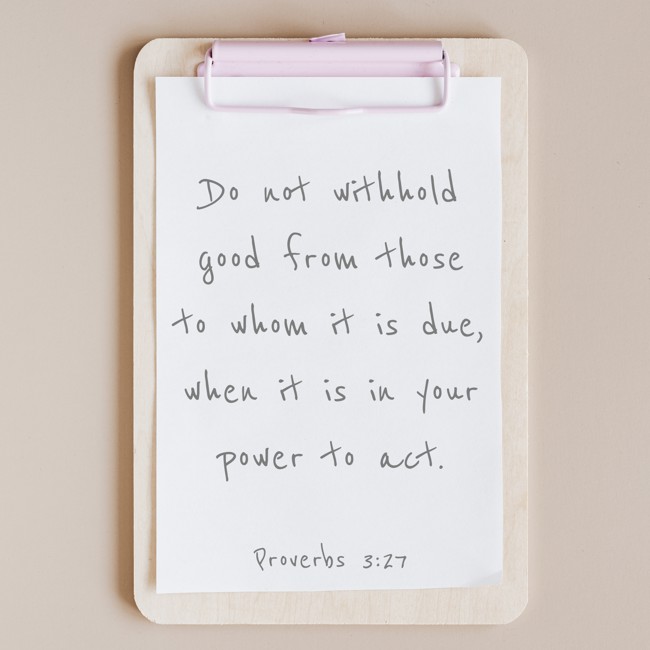 Do not withhold
good from those
to whom it is due,
when it is in your
power to act.
Proverbs 3:27